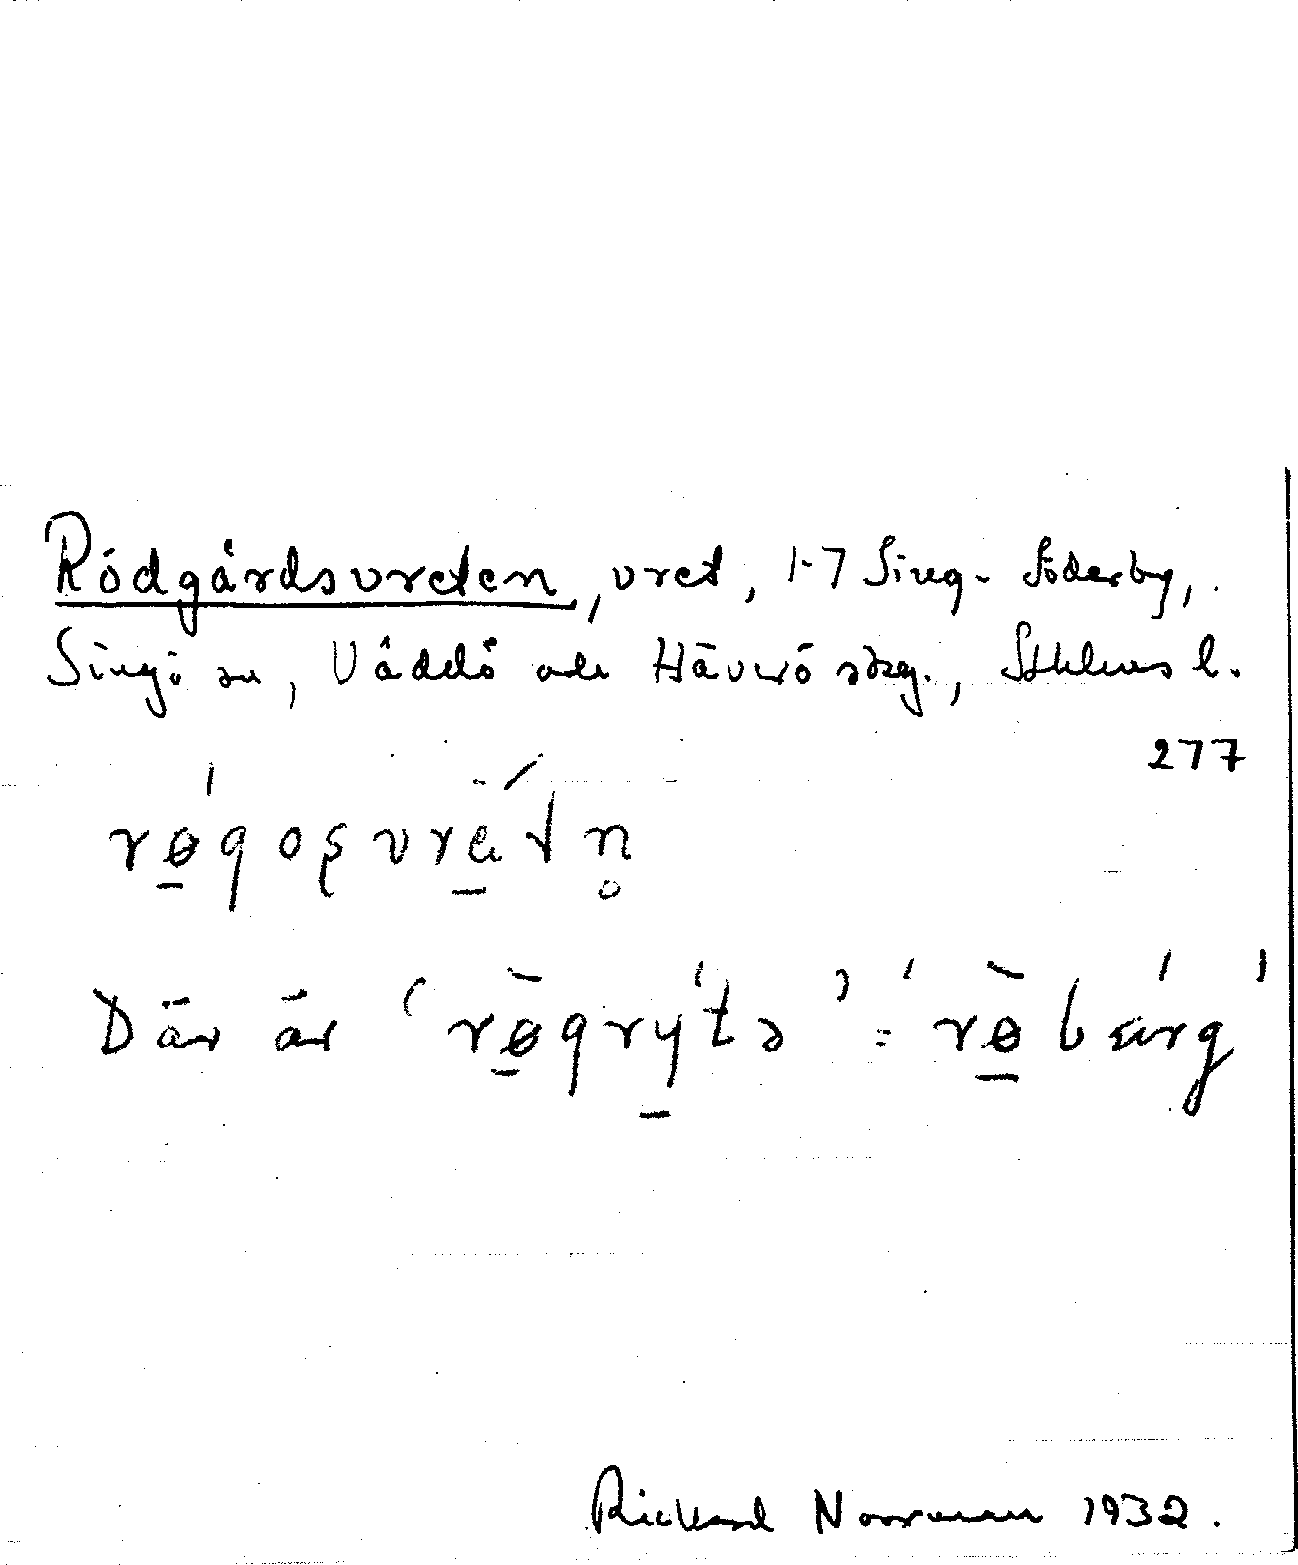 Rödgårdsvreten, vret, 1-7 Sing-Söderby,
Singö sn, Väddö och Häverö skg., Sthlms l.
277
rǿ̱qoʂvrä̱́tn̥
Där är 'rø̱̀qrý̱tə' = 'rø̱̀bárg'
Rickard Norrman 1932.